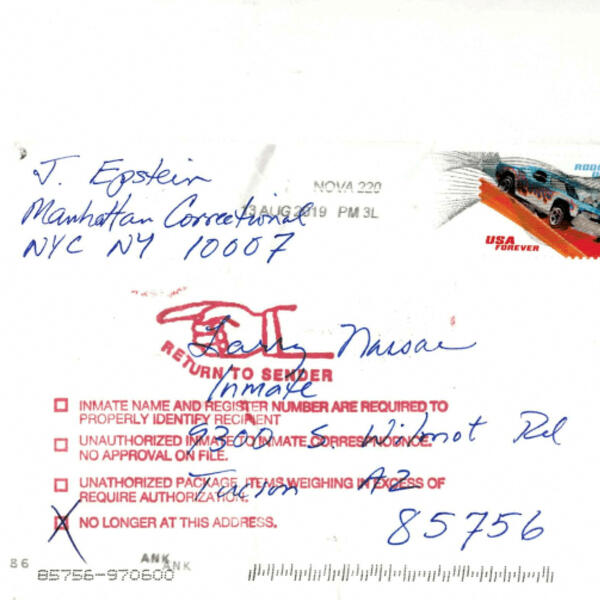 J. Epstein
Manhattan Correctional
NYC NY 10007
NOVA 220
13 AUG 2019 PM 3L
USA
FOREVER
Larry Nassar
RETURN TO SENDER
Inmate
INMATE NAME AND REGISTER NUMBER ARE REQUIRED TO
PROPERLY IDENTIFY RECIPIENT
9300 S. Wilmot Rd
UNAUTHORIZED INMATE TO INMATE CORRESPONDENCE.
NO APPROVAL ON FILE.
Tucson AZ
UNAUTHORIZED PACKAGE, ITEMS WEIGHING IN EXCESS OF
REQUIRE AUTHORIZATION.
85756
X NO LONGER AT THIS ADDRESS.
86
ANK
ANK
85756-970600